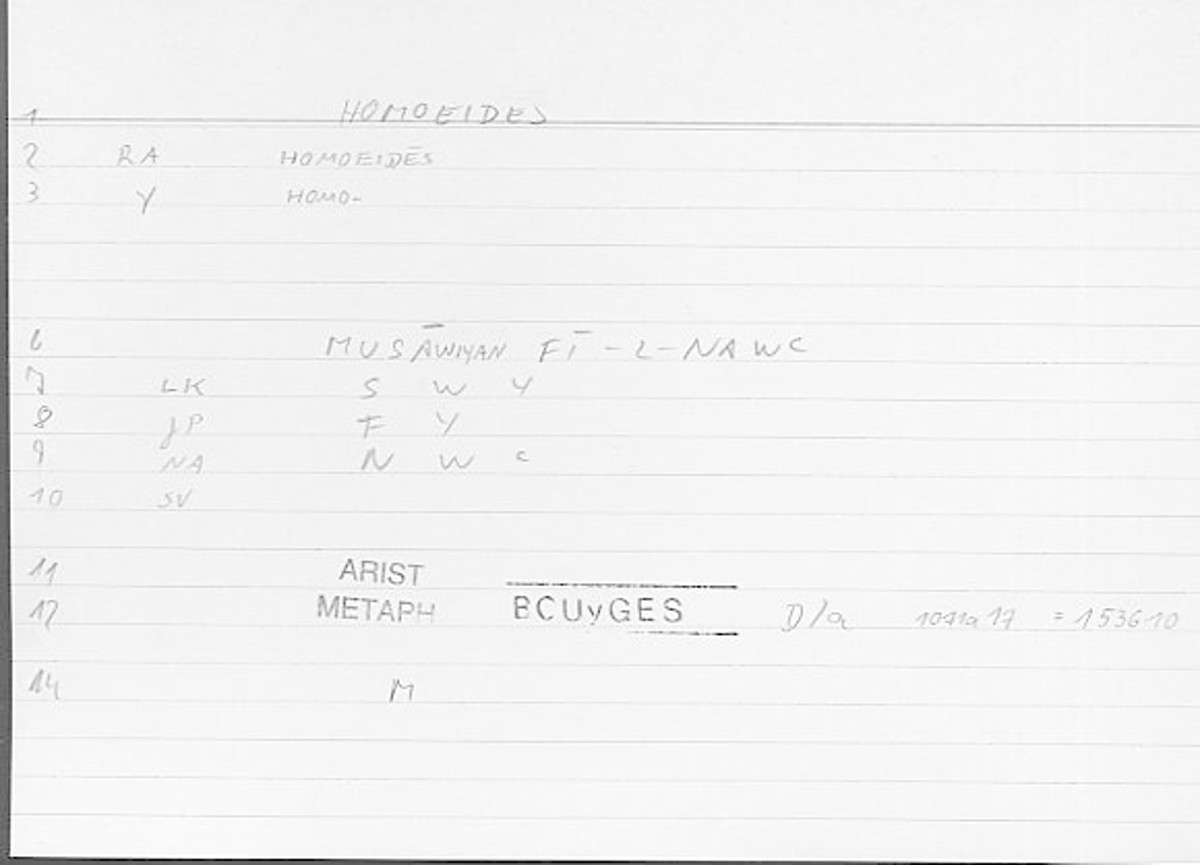 1 HOMOEIDES
2 RA HOMOEIDĒS
3 Y HOMO-
6 MUSĀWIYAN FĪ-L-NAWC
7 LK S W Y
8 JP F Y
9 NA N W C
10 SV
11 ARIST
12 METAPH BCUyGES D/a 1071a17 = 153610
14 M